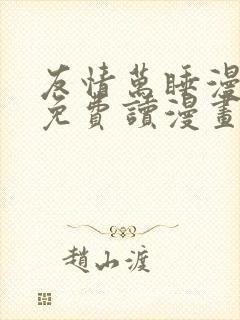 友情萬睡漫
免費讀漫畫
趙山渡